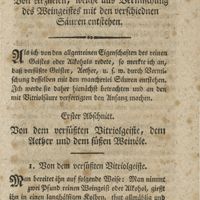 Von Arzneien, welche aus Vermischung
des Weingeistes mit den verschiednen
Säuren entstehen.
Als ich von den allgemeinen Eigenschaften des reinen
Geistes oder Alkohols redete, so merkte ich an,
daß versüßte Geister, Aether, u. s. w. durch Vermi-
schung desselben mit den mancherlei Säuren entstehen.
Ich werde sie daher hierselbst betrachten und an den
mit Vitriolsäure verfertigten den Anfang machen.
Erster Abschnitt.
Von dem versüßten Vitriolgeiste, dem
Aether und dem süßen Weinöle.
1. Von dem versüßten Vitriolgeiste.
Man bereitet ihn auf folgende Weise: Man nimmt
zwei Pfund reinen Weingeist oder Alkohol, gießt
ihn in einen langhälsigten Kolben, thut allmählig und